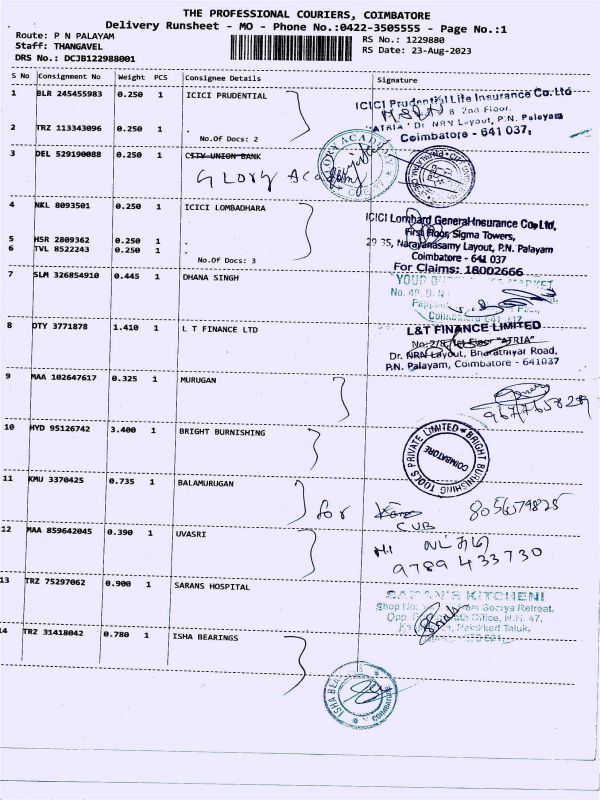 THE PROFESSIONAL COURIERS, COIMBATORE
Delivery Runsheet - MO - Phone No.:0422-3505555 - Page No.:1
Route: P N PALAYAM
RS No.: 1229880
Staff: THANGAVEL
RS Date: 23-Aug-2023
DRS No.: DCJB122988001
S No Consignment No Weight PCS Consignee Details Signature
1 BLR 245455983 0.250 1 ICICI PRUDENTIAL
ICICI Prudential Life Insurance Co. Ltd
2nd Floor,
"ATRIA" Dr. NRN Layout, P.N. Palayam
Coimbatore - 641 037,
2 TRZ 113343096 0.250 1 .
No.Of Docs: 2
3 DEL 529190088 0.250 1 CITY UNION BANK
GLORY Academy
4 NKL 8093501 0.250 1 ICICI LOMBADHARA
ICICI Lombard General Insurance Co, Ltd,
First Floor, Sigma Towers,
5 HSR 2809362 0.250 1 .
29 35, Narayanasamy Layout, P.N. Palayam
6 TVL 8522243 0.250 1 .
Coimbatore - 641 037
No.Of Docs: 3
For Claims: 18002666
7 SLM 326854910 0.445 1 DHANA SINGH
YOUR
MARKET
No. 49,
8 OTY 3771878 1.410 1 L T FINANCE LTD
L&T FINANCE LIMITED
Floor "ATRIA"
Dr. NRN Layout, Bharathiyar Road,
P.N. Palayam, Coimbatore - 641037
9 MAA 102647617 0.325 1 MURUGAN
10 HYD 95126742 3.400 1 BRIGHT BURNISHING
BRIGHT BURNISHING TOOLS PRIVATE LIMITED
COIMBATORE
11 KMU 3370425 0.735 1 BALAMURUGAN
for
CUB
8056079825
12 MAA 859642045 0.390 1 UVASRI
9789 433730
13 TRZ 75297062 0.900 1 SARANS HOSPITAL
SARAN'S KITCHEN
Shop No:
Soorya Retreat,
Office, N.H. 47,
14 TRZ 31418042 0.780 1 ISHA BEARINGS
ISHA BEA
COIMBATORE